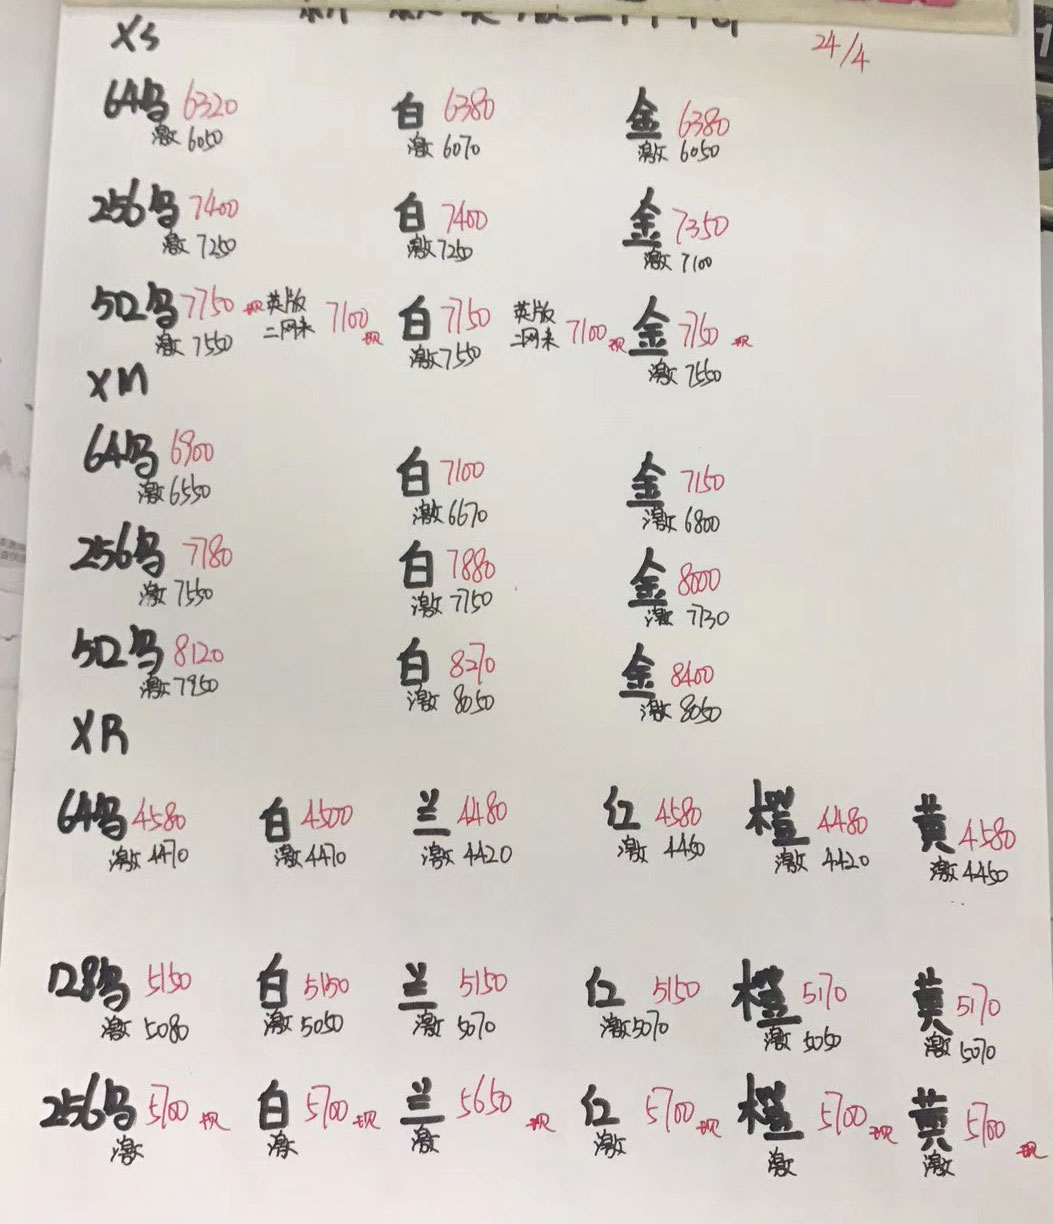 24/4
XS
64乌 6320 白 6380 金 6380
激 6050 激 6070 激 6050
256乌 7400 白 7400 金 7350
激 7250 激 7250 激 7100
512乌 7750 现 英版 二网未 7100 现 白 7750 英版 二网未 7100 现 金 7750 现
激 7550 激 7550 激 7550
XM
64乌 6900 白 7100 金 7150
激 6550 激 6670 激 6800
256乌 7780 白 7880 金 8000
激 7550 激 7750 激 7730
512乌 8120 白 8270 金 8400
激 7950 激 8050 激 8050
XR
64乌 4580 白 4500 兰 4480 红 4580 橙 4480 黄 4580
激 4470 激 4470 激 4420 激 4450 激 4420 激 4450
128乌 5150 白 5150 兰 5150 红 5150 橙 5170 黄 5170
激 5080 激 5050 激 5070 激 5070 激 5050 激 5070
256乌 5700 现 白 5700 现 兰 5650 现 红 5700 现 橙 5700 现 黄 5700 现
激 激 激 激 激 激